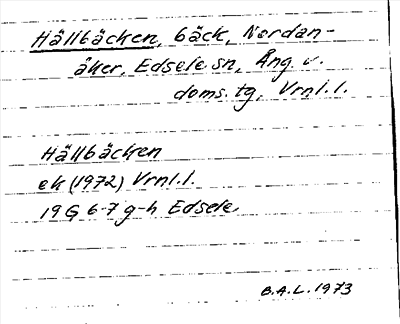 Hällbäcken, bäck, Nordan-
åker, Edsele sn, Ång. v.
doms. tg, Vrnl. l.
Hällbäcken
ek (1972) Vrnl. l.
19G 6-7 g-h Edsele
B.A.L. 1973